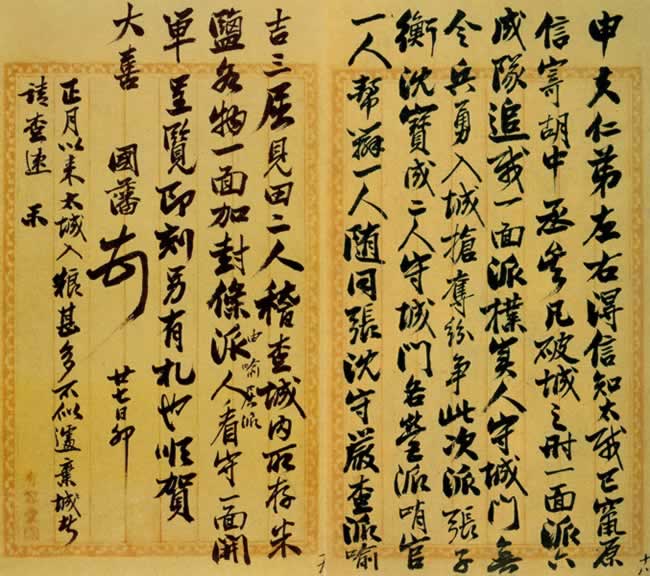 申夫仁弟左右得信知太賊已竄原
信寄胡中丞矣凡破城之時一面派六
成隊追賊一面派樸實人守城門無
令兵勇入城搶奪紛爭此次派張子
衡沈寶成二人守城門各營派哨官
一人幫辦一人隨同張沈守嚴查派喻
十八
吉三屈見田二人稽查城內所存米
鹽各物一面加封條派人看守一面開
由喻屈派
單呈覽即刻另有札也順賀
大喜 國藩 廿七日卯
正月以來太城入糧甚多不似遽棄城者
請查速示